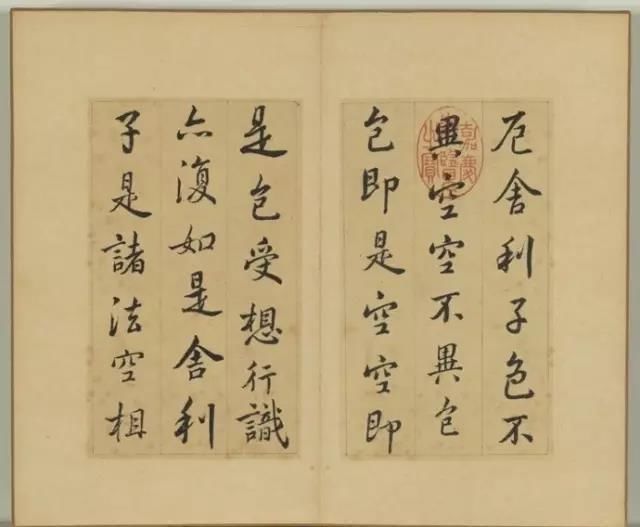 厄舍利子色不
異空空不異色
色即是空空即
是色受想行識
亦復如是舍利
子是諸法空相
嘉慶御覽之寶